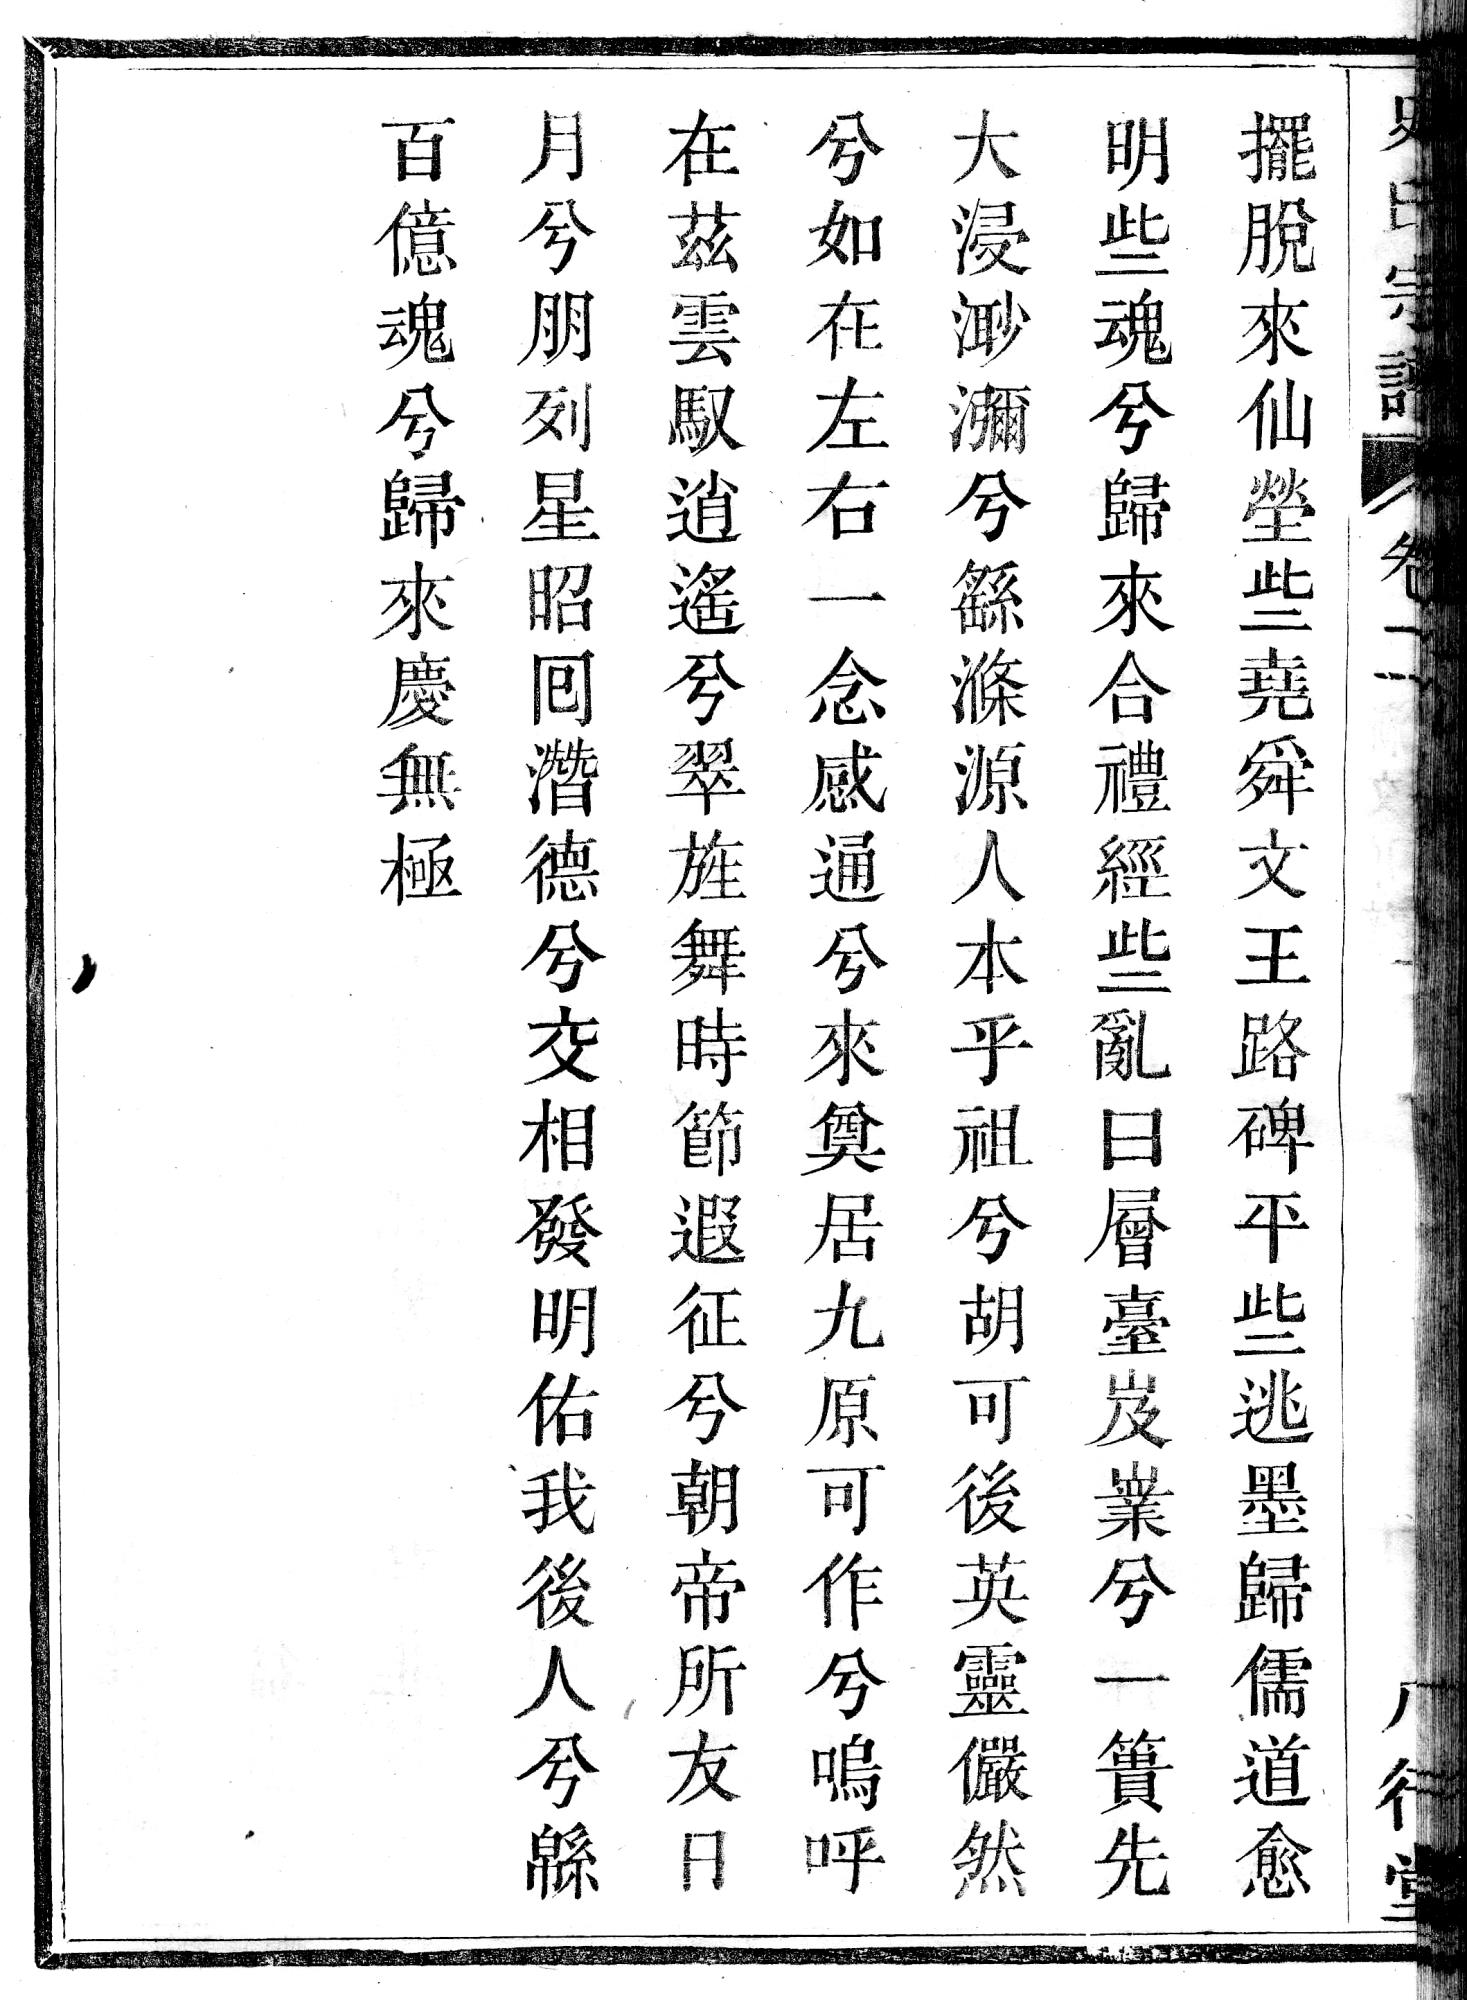 擺脫來仙塋些堯舜文王路碑平些逃墨歸儒道愈
明些魂兮歸來合禮經些亂曰層臺岌嶪兮一簣先
大浸渺瀰兮繇滌源人本乎祖兮胡可後英靈儼然
兮如在左右一念感通兮來奠居九原可作兮嗚呼
在茲雲馭逍遙兮翠旌舞時節遐征兮朝帝所友日
月兮朋列星昭囘濳德兮交相發明佑我後人兮緜
百億魂兮歸來慶無極
宗譜 卷二 八行堂